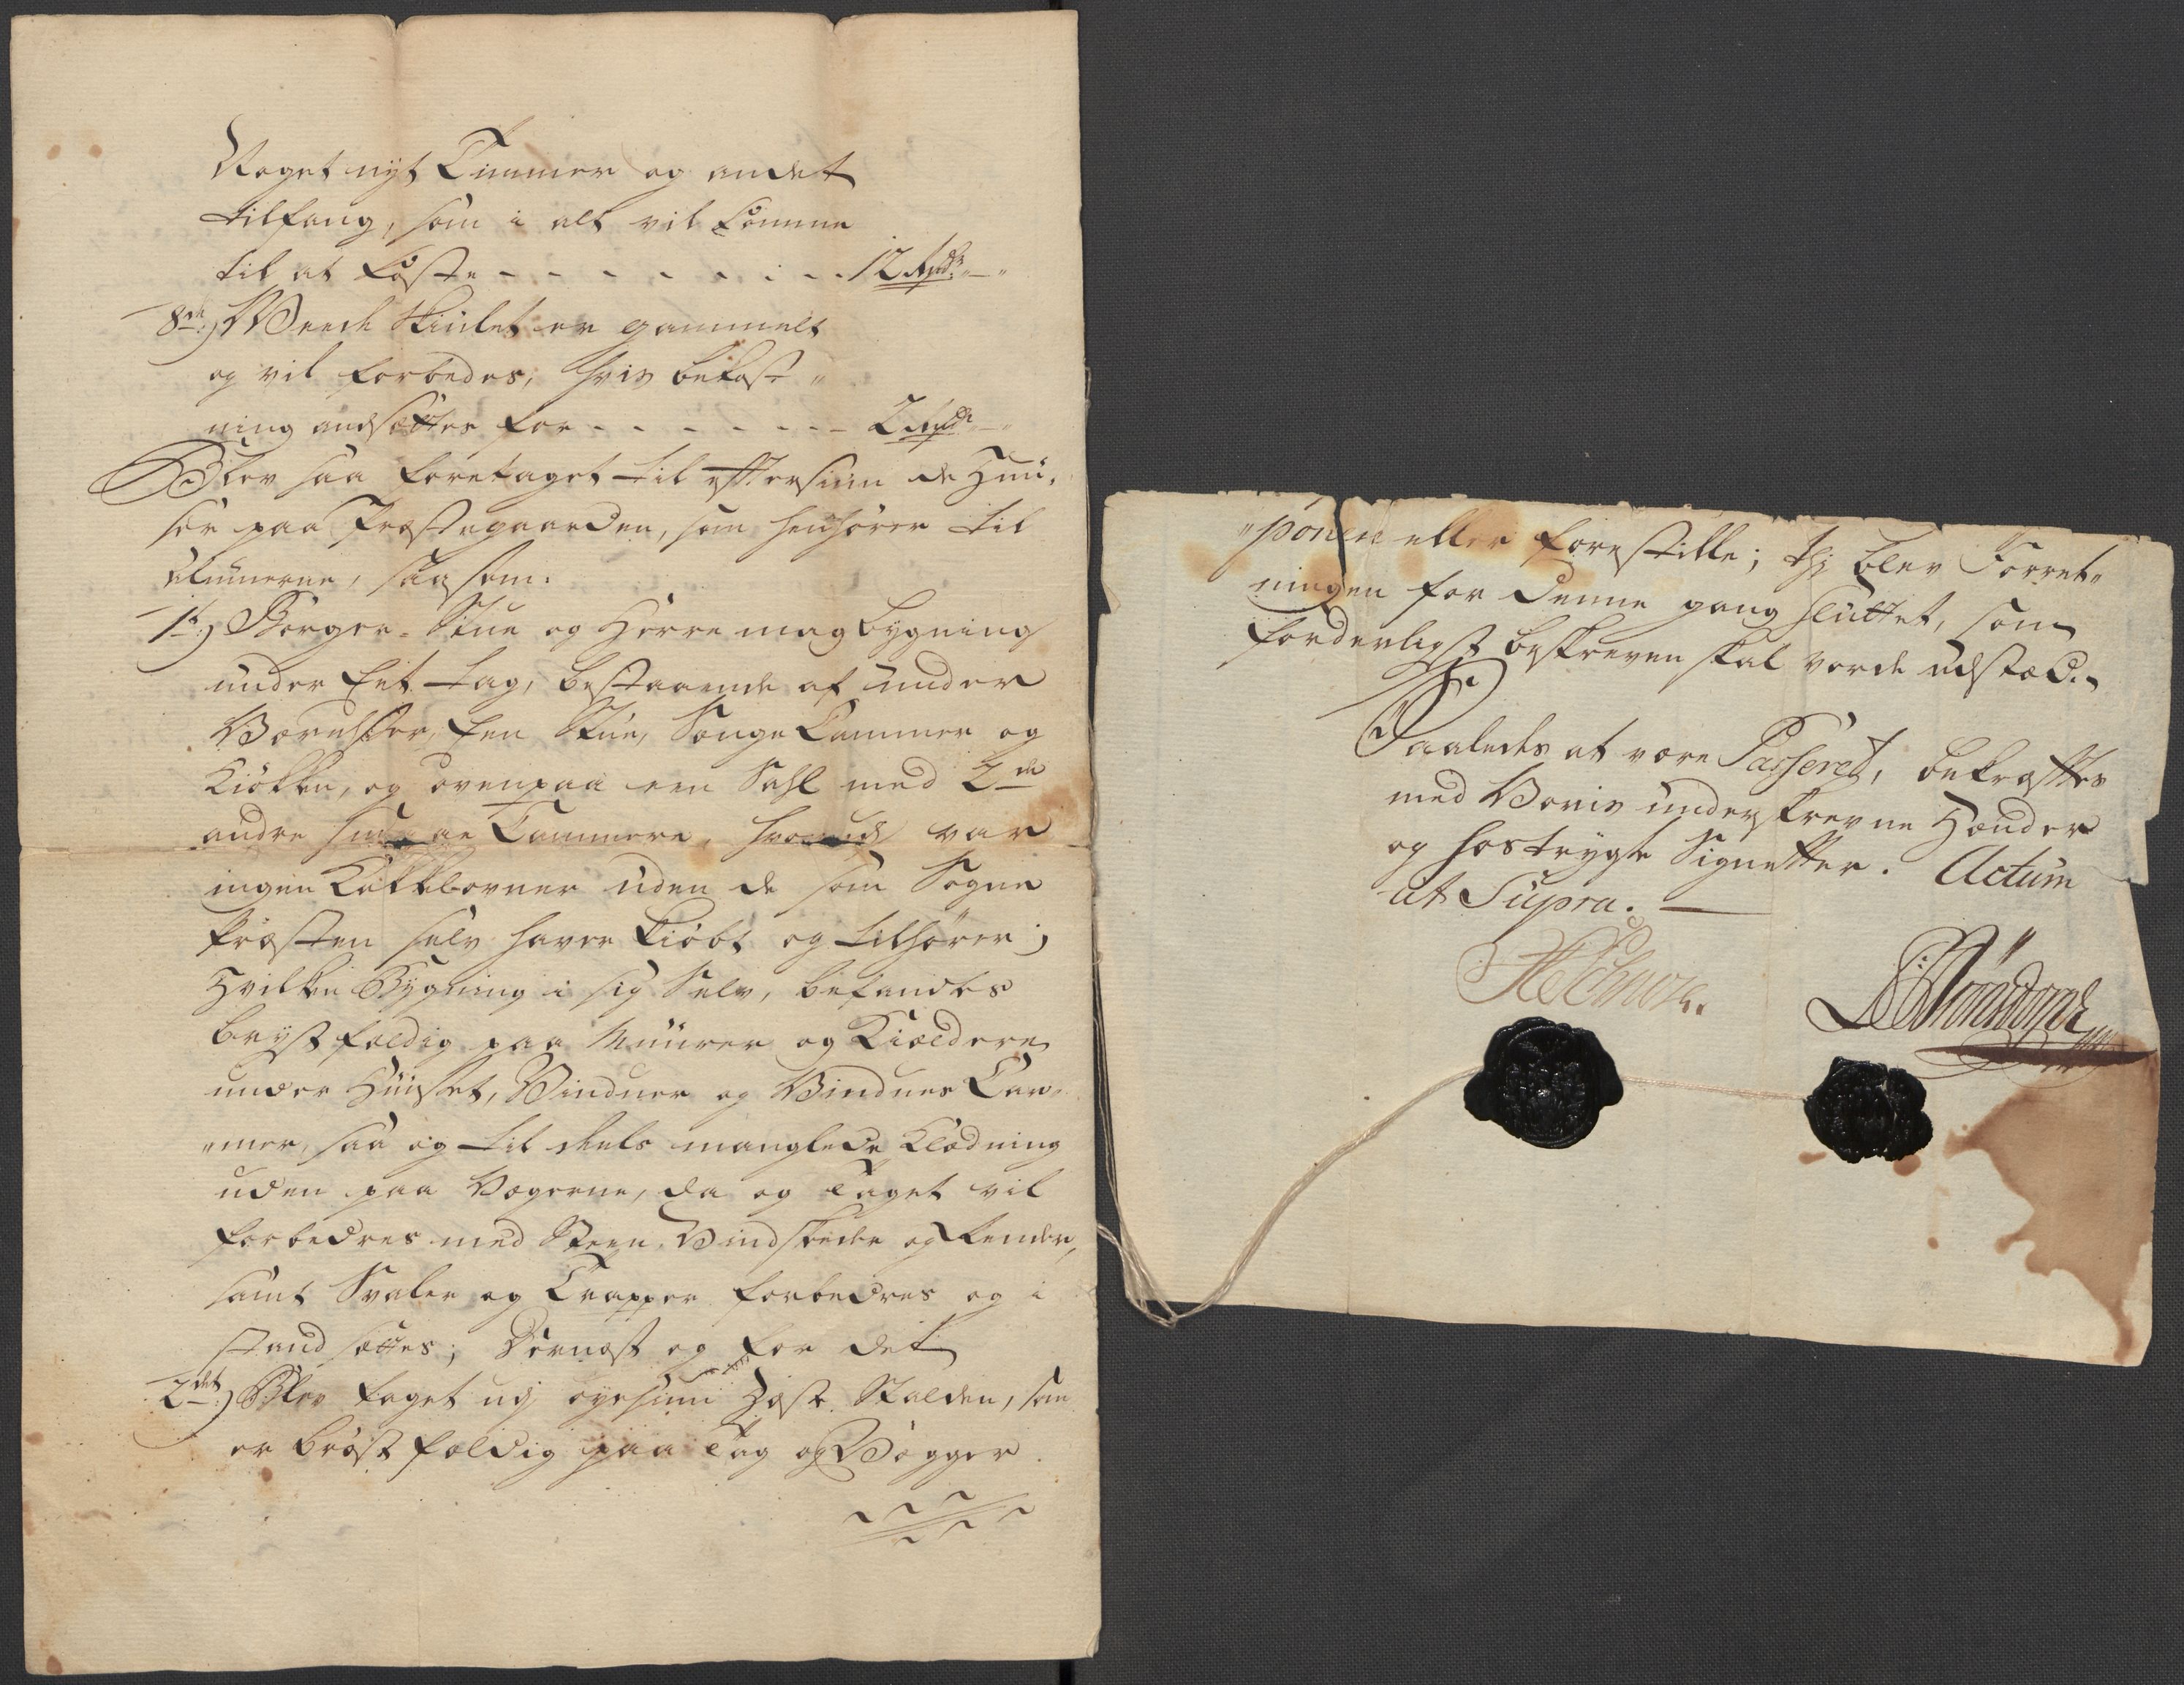 Noget nyt Timmer og andet
tilfang, som i alt vil komme
til at koste - - - - - - - - 12 Rdr „ - „
8de) Weede Skiulet er gammelt
og vil forbedes, hvis bekost „
ning andsættes for - - - - - - - 2 Rdr „ - „
Blev saa foretaget til effter siun de Huu,
ser paa Præstegaarden, som henhører til
Almuerne, saasom.
1te) Borger-Stue og Herremag bygning
under Eet Tag, bestaaende af under
Værelser, Een Stue, Sænge Kammer og
Kiökken, og ovenpaa een Sahl med 2de
andre smaae Kammere, hvorudj var
ingen Kakkelovner uden de som Sogne
Præsten selv haver kiöbt og tilhører;
Hvilken Bygning i sig Selv, befandtes
bryst fældig paa Muurer og Kieldere
under Huuset, Vinduer og Vindues Kar„
„mer, saa og til deels manglede Klædning
uden paa Vægerne, da og Taget vil
forbedres med Steen, Vindskeeder og Render,
samt Svaler og Trapper forbedres og i
stand sættes; Dernæst og for det
2det) Blev taget udj öyesiun Hæste Stalden, som
er bröst fældig paa Tag og Vægger.
„ponere eller forestille; thj blev Forret„
ningen for denne gang sluttet, som
forderligst beskreven skal vorde udstæd.
Saaledes at være Passeret, bekræfftes
med Voris underskrevne Hænder
og hostrygte Signetter. Actum
ut Supra. —